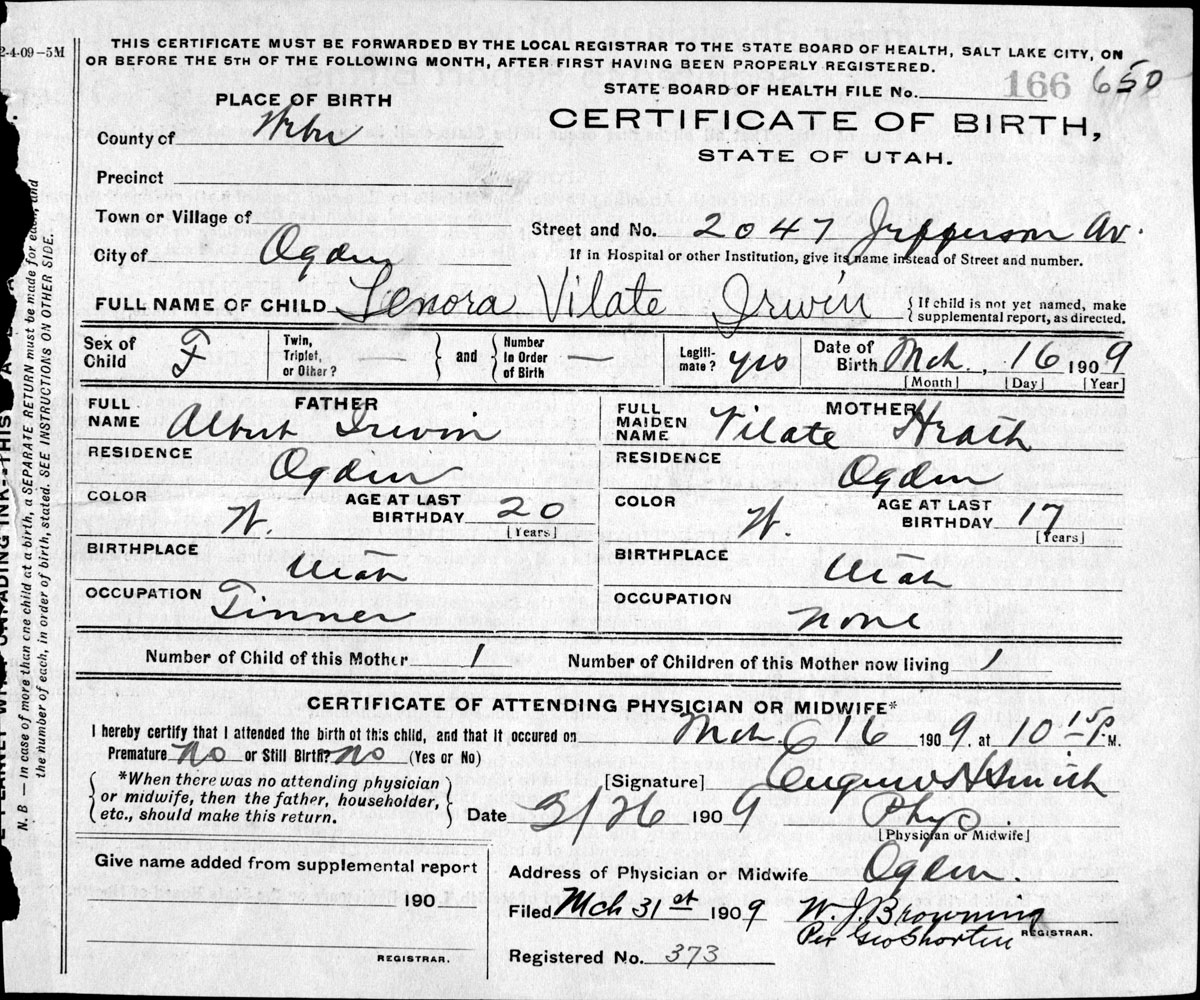 2-4-09-5M
THIS CERTIFICATE MUST BE FORWARDED BY THE LOCAL REGISTRAR TO THE STATE BOARD OF HEALTH, SALT LAKE CITY, ON
OR BEFORE THE 5TH OF THE FOLLOWING MONTH, AFTER FIRST HAVING BEEN PROPERLY REGISTERED.
STATE BOARD OF HEALTH FILE No. 166 650
PLACE OF BIRTH
CERTIFICATE OF BIRTH,
STATE OF UTAH.
County of Weber
Precinct
Town or Village of
Street and No. 2047 Jefferson Av.
City of Ogden
If in Hospital or other Institution, give its name instead of Street and number.
FULL NAME OF CHILD Lenora Vilate Irwin
{If child is not yet named, make
supplemental report, as directed.
Sex of Child F
Twin, Triplet, or Other? —
and
Number in Order of Birth —
Legitimate? yes
Date of Birth Mch. , 16 1909
[Month] [Day] [Year]
FATHER
FULL NAME Albert Irwin
RESIDENCE Ogden
COLOR W.
AGE AT LAST BIRTHDAY 20
[Years]
BIRTHPLACE Utah
OCCUPATION Tinner
MOTHER
FULL MAIDEN NAME Vilate Heath
RESIDENCE Ogden
COLOR W.
AGE AT LAST BIRTHDAY 17
[Years]
BIRTHPLACE Utah
OCCUPATION None
Number of Child of this Mother 1
Number of Children of this Mother now living 1
CERTIFICATE OF ATTENDING PHYSICIAN OR MIDWIFE*
I hereby certify that I attended the birth of this child, and that it occured on Mch. 16 1909. at 10 15 P. M.
Premature No or Still Birth? No (Yes or No)
*When there was no attending physician
or midwife, then the father, householder,
etc., should make this return.
[Signature] H Smith
Date 3/26 1909
Phys.
[Physician or Midwife]
Give name added from supplemental report
190
REGISTRAR.
Address of Physician or Midwife Ogden.
Filed Mch 31st 1909
W. J. Browning
REGISTRAR.
Per Geo Shorten
Registered No. 373
N. B — In case of more than one child at a birth, a SEPARATE RETURN must be made for each, and
the number of each, in order of birth, stated. SEE INSTRUCTIONS ON OTHER SIDE.